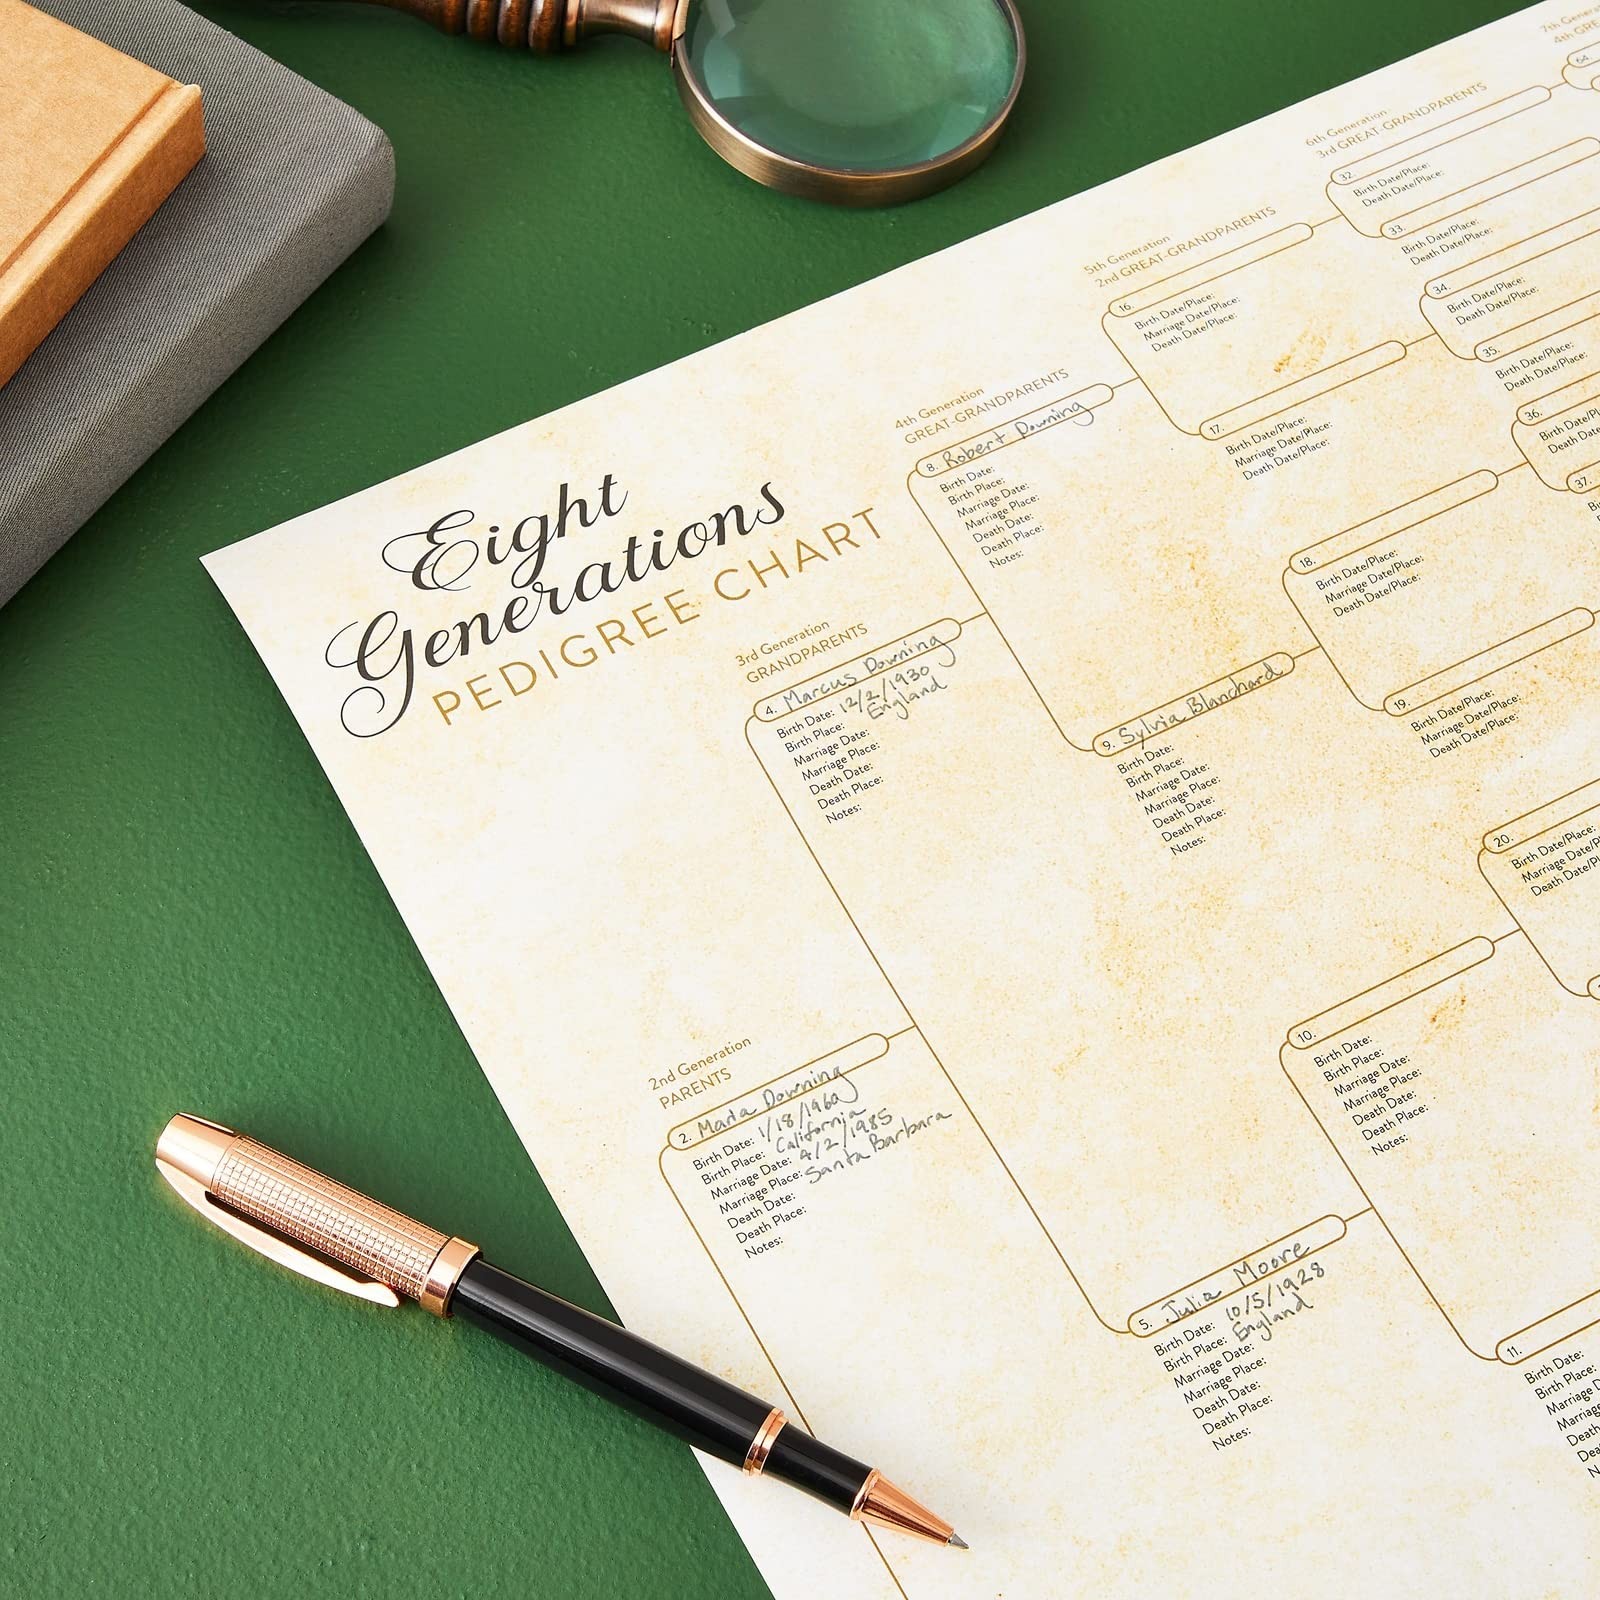 Eight
Generations
PEDIGREE CHART
2nd Generation
PARENTS
2. Maria Downing
Birth Date: 1/18/1960
Birth Place: California
Marriage Date: 4/2/1985
Marriage Place: Santa Barbara
Death Date:
Death Place:
Notes:
3rd Generation
GRANDPARENTS
4. Marcus Downing
Birth Date: 12/2/1930
Birth Place: England
Marriage Date:
Marriage Place:
Death Date:
Death Place:
Notes:
5. Julia Moore
Birth Date: 10/5/1928
Birth Place: England
Marriage Date:
Marriage Place:
Death Date:
Death Place:
Notes:
4th Generation
GREAT-GRANDPARENTS
8. Robert Downing
Birth Date:
Birth Place:
Marriage Date:
Marriage Place:
Death Date:
Death Place:
Notes:
9. Sylvia Blanchard
Birth Date:
Birth Place:
Marriage Date:
Marriage Place:
Death Date:
Death Place:
Notes:
10.
Birth Date:
Birth Place:
Marriage Date:
Marriage Place:
Death Date:
Death Place:
Notes:
11.
Birth Date:
Birth Place:
Marriage
Marriage
Death
5th Generation
2nd GREAT-GRANDPARENTS
16.
Birth Date/Place:
Marriage Date/Place:
Death Date/Place:
17.
Birth Date/Place:
Marriage Date/Place:
Death Date/Place:
18.
Birth Date/Place:
Marriage Date/Place:
Death Date/Place:
19.
Birth Date/Place:
Marriage Date/Place:
Death Date/Place:
20.
Birth Date/Place:
Marriage Date/P
Death Date/Pl
6th Generation
3rd GREAT-GRANDPARENTS
32.
Birth Date/Place:
Death Date/Place:
33.
Birth Date/Place:
Death Date/Place:
34.
Birth Date/Place:
Death Date/Place:
35.
Birth Date/Place:
Death Date/Place:
36.
Birth Date/
Death Date/
37.
7th
4th
64.